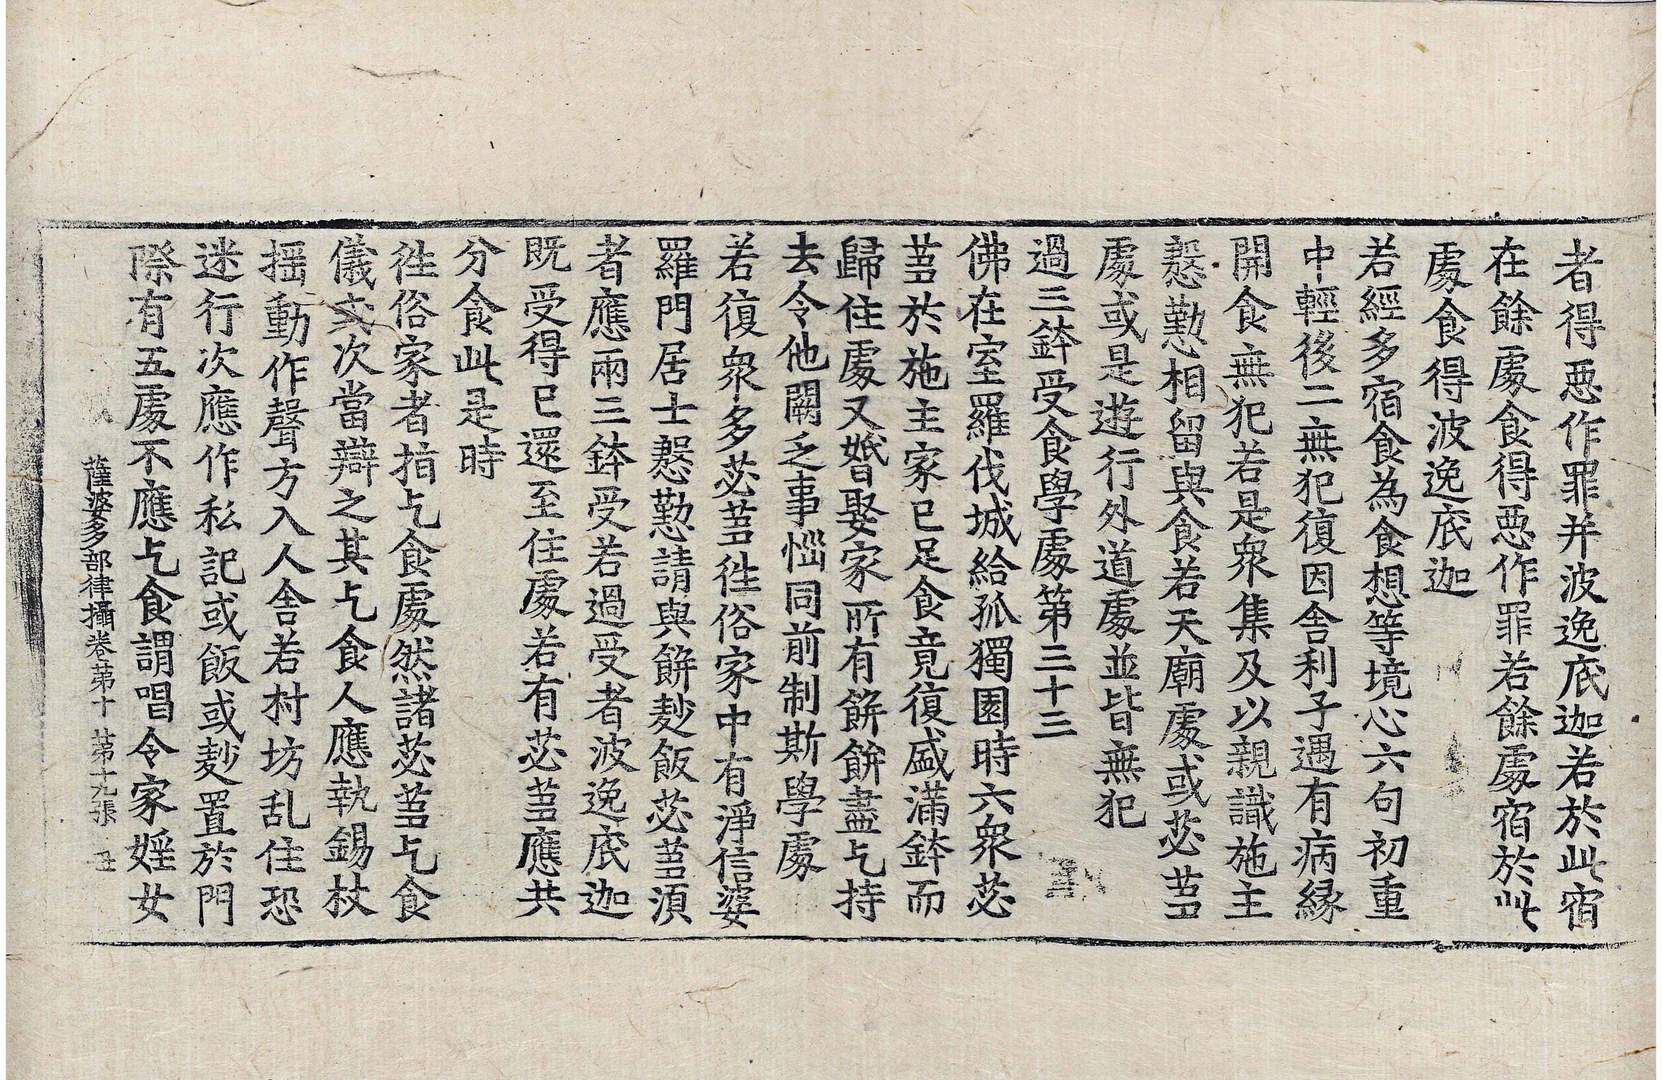 者得惡作罪并波逸底迦若於此宿
在餘處食得惡作罪若餘處宿於此
處食得波逸底迦
若經多宿食為食想等境心六句初重
中輕後二無犯復因舍利子遇有病緣
開食無犯若是眾集及以親識施主
慇懃相留與食若天廟處或苾芻
處或是遊行外道處並皆無犯
過三鉢受食學處第三十三
佛在室羅伐城給孤獨園時六眾苾
芻於施主家已足食竟復盛滿鉢而
歸住處又婚娶家所有餅䴵盡乞持
去令他闕乏事惱同前制斯學處
若復眾多苾芻徃俗家中有淨信婆
羅門居士慇懃請與餅麨飯苾芻湏
者應兩三鉢受若過受者波逸底迦
既受得已還至住處若有苾芻應共
分食此是時
徃俗家者指乞食處然諸苾芻乞食
儀式次當辯之其乞食人應執錫杖
搖動作聲方入人舍若村坊乱住恐
迷行次應作私記或飯或麨置於門
際有五處不應乞食謂唱令家婬女
薩婆多部律攝卷苐十 苐十九張 丑